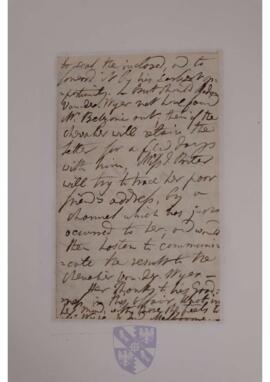 to send the inclosed, and to
forward it by his earliest op-
portunity. — But should
Van de Wyer not have found
Mr Belzoni out, then if the
Chevalier will retain the
letter for a few days
with him, Miss J Porter
will try to trace her poor
friend's address, by a
channel which has just
occurred to her, and would
then hasten to communi-
cate the result to the
Chevalier Van de Wyer —
Her thanks to his Good-
ness in this affair,